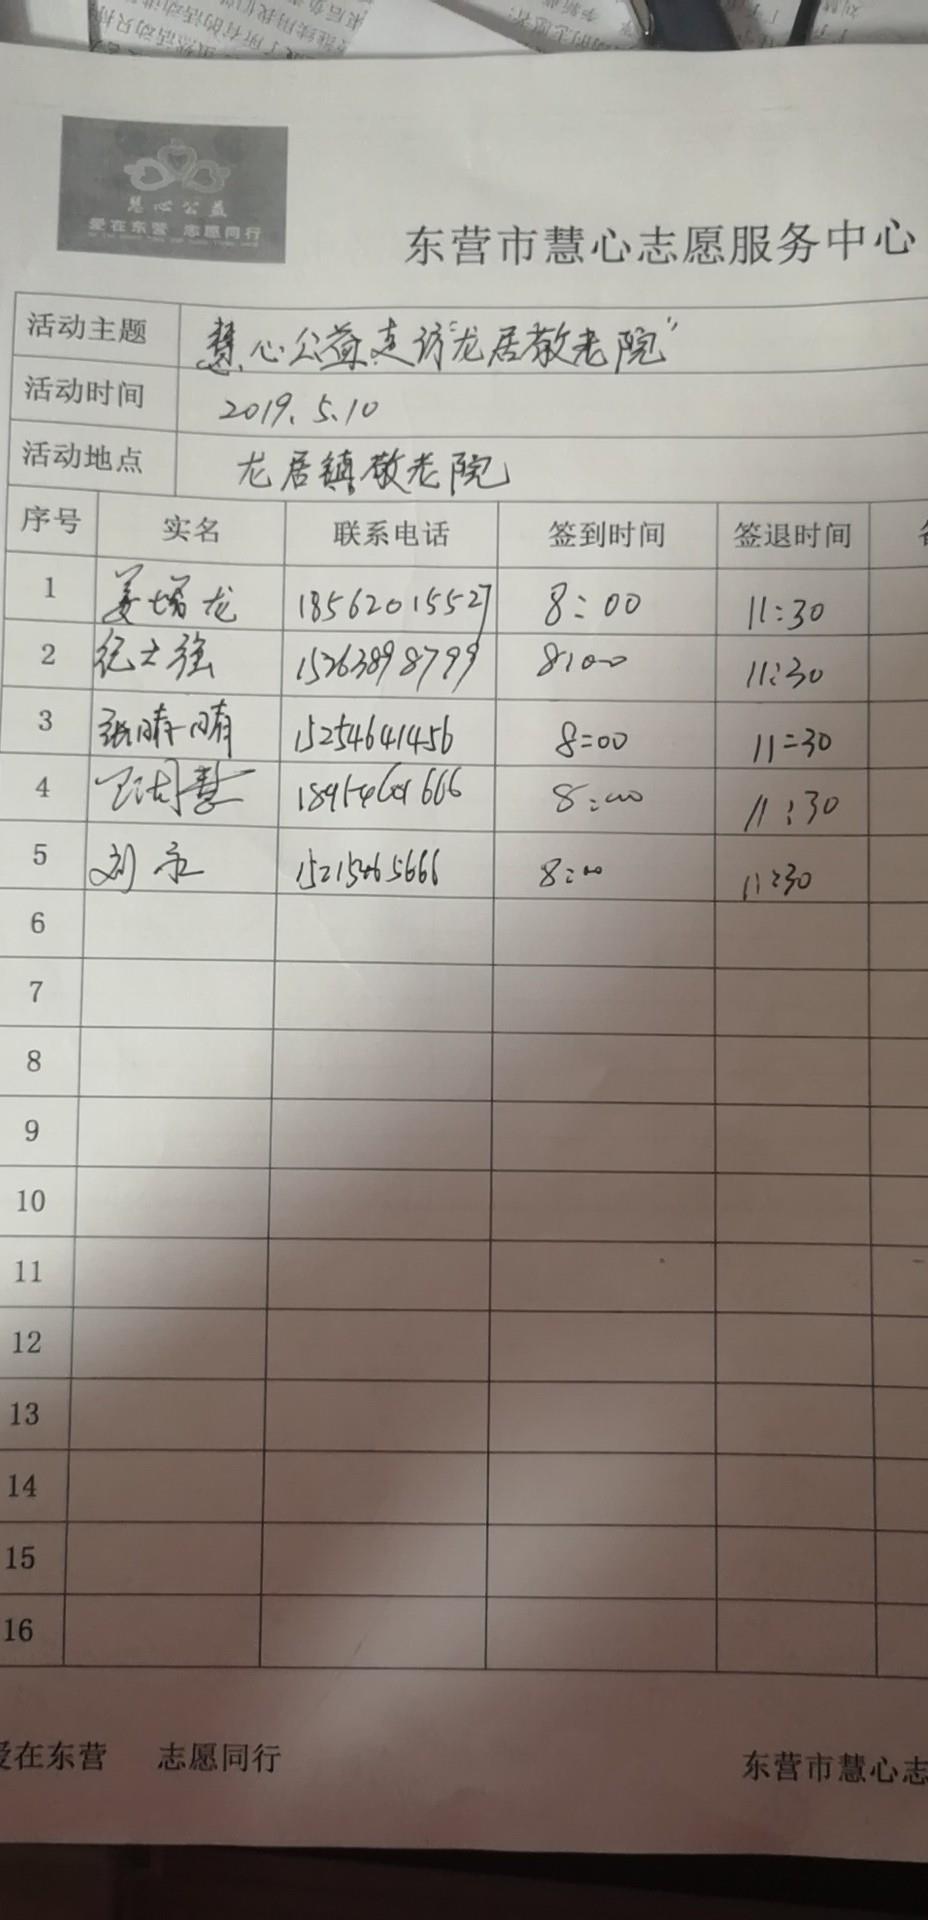 慧心公益
爱在东营 志愿同行
东营市慧心志愿服务中心
活动主题 慧心公益走访“龙居敬老院”
活动时间 2019.5.10
活动地点 龙居镇敬老院
序号 实名 联系电话 签到时间 签退时间
1 姜增龙 18562015527 8:00 11:30
2 纪士强 15263898799 8:00 11:30
3 张晴晴 15254641456 8:00 11:30
4 8:00 11:30
5 刘永 15215465666 8:00 11:30
6
7
8
9
10
11
12
13
14
15
16
爱在东营 志愿同行 东营市慧心志